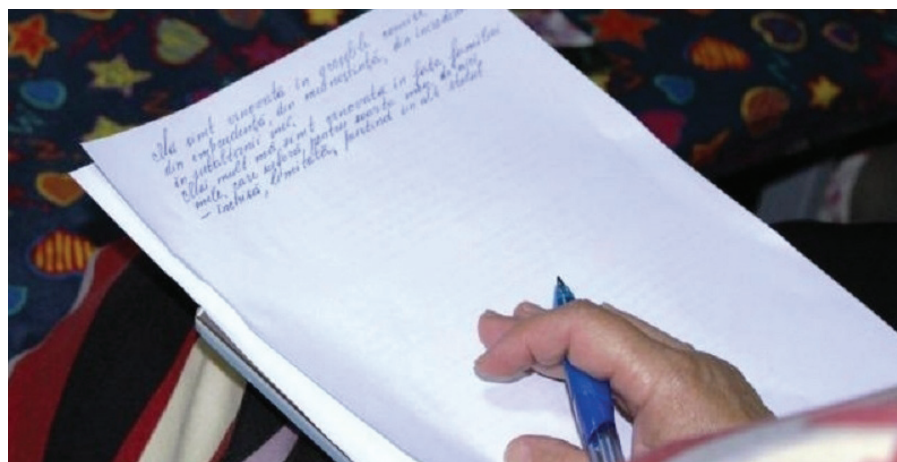 Mă simt vinovată în greșeli comise
din imprudență, din necunoștință, din încredere
în subalternii mei.
Mai mult mă simt vinovată în fața familiei
mele, care suferă, pentru soarta mea de azi
– închisă, limitată, pierdind un alt statut